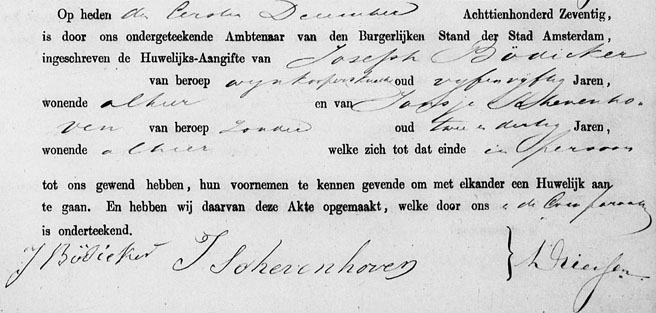 Op heden den Eersten December Achttienhonderd Zeventig,
is door ons ondergeteekende Ambtenaar van den Burgerlijken Stand der Stad Amsterdam,
ingeschreven de Huwelijks-Aangifte van Joseph Bödicker
van beroep wijnkoopersknecht oud vyfenvyftig Jaren,
wonende alhier en van Jansje Schevenho-
ven van beroep zonder oud twee en dertig Jaren,
wonende alhier welke zich tot dat einde in persoon
tot ons gewend hebben, hun voornemen te kennen gevende om met elkander een Huwelijk aan
te gaan. En hebben wij daarvan deze Akte opgemaakt, welke door ons & de Comparanten
is onderteekend.
J Bödicker J Schevenhoven